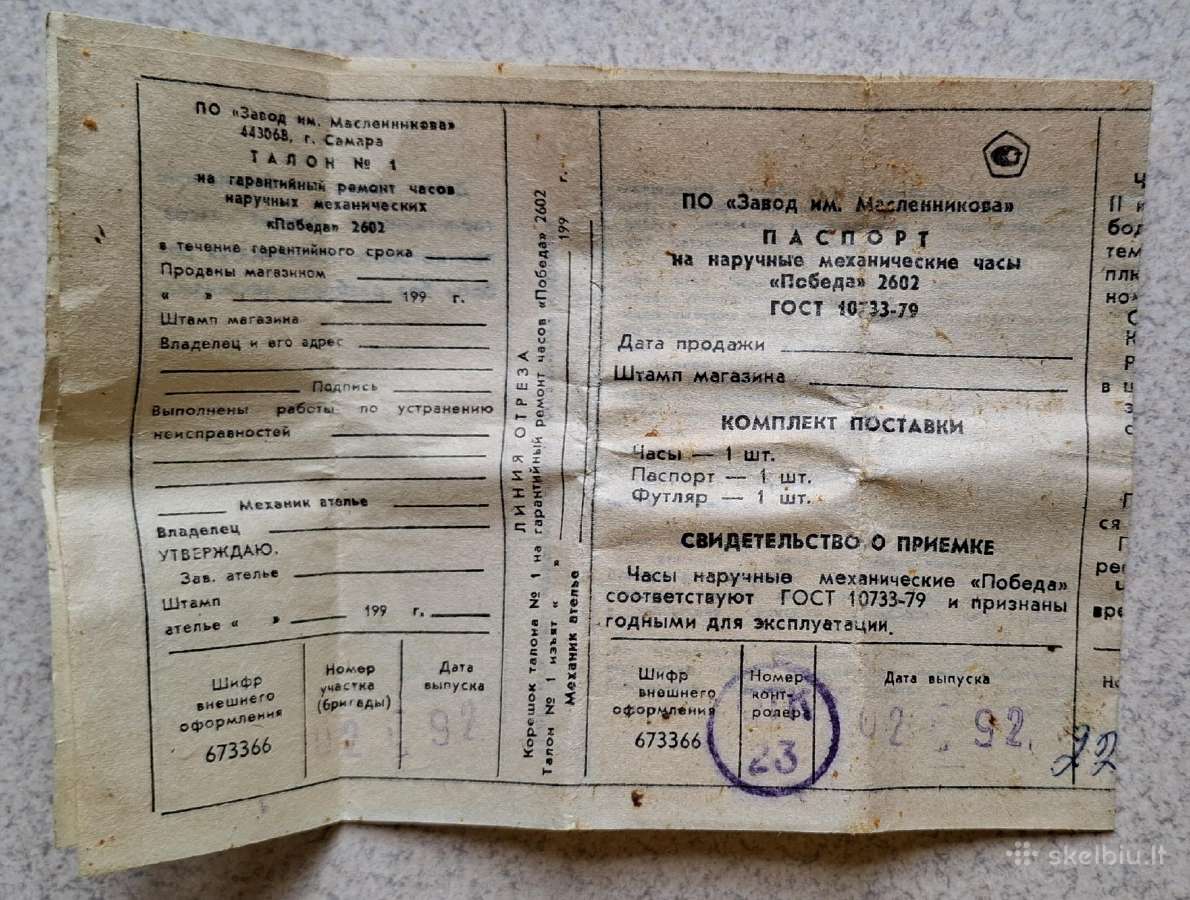 ПО «Завод им. Масленникова»
443068, г. Самара
ТАЛОН № 1
на гарантийный ремонт часов
наручных механических
«Победа» 2602
в течение гарантийного срока
Проданы магазином
« » 199 г.
Штамп магазина
Владелец и его адрес
Подпись
Выполнены работы по устранению
неисправностей
Механик ателье
Владелец
УТВЕРЖДАЮ.
Зав. ателье
Штамп
ателье « » 199 г.
Шифр
внешнего
оформления
673366
Номер
участка
(бригады)
Дата
выпуска
92
ЛИНИЯ ОТРЕЗА
Корешок талона № 1 на гарантийный ремонт часов «Победа» 2602
Талон № 1 изъят « » 199 г.
Механик ателье
ПО «Завод им. Масленникова»
ПАСПОРТ
на наручные механические часы
«Победа» 2602
ГОСТ 10733-79
Дата продажи
Штамп магазина
КОМПЛЕКТ ПОСТАВКИ
Часы — 1 шт.
Паспорт — 1 шт.
Футляр — 1 шт.
СВИДЕТЕЛЬСТВО О ПРИЕМКЕ
Часы наручные механические «Победа»
соответствуют ГОСТ 10733-79 и признаны
годными для эксплуатации.
Шифр
внешнего
оформления
673366
Номер
конт-
ролера
23
Дата выпуска
92
22
skelbiu.lt